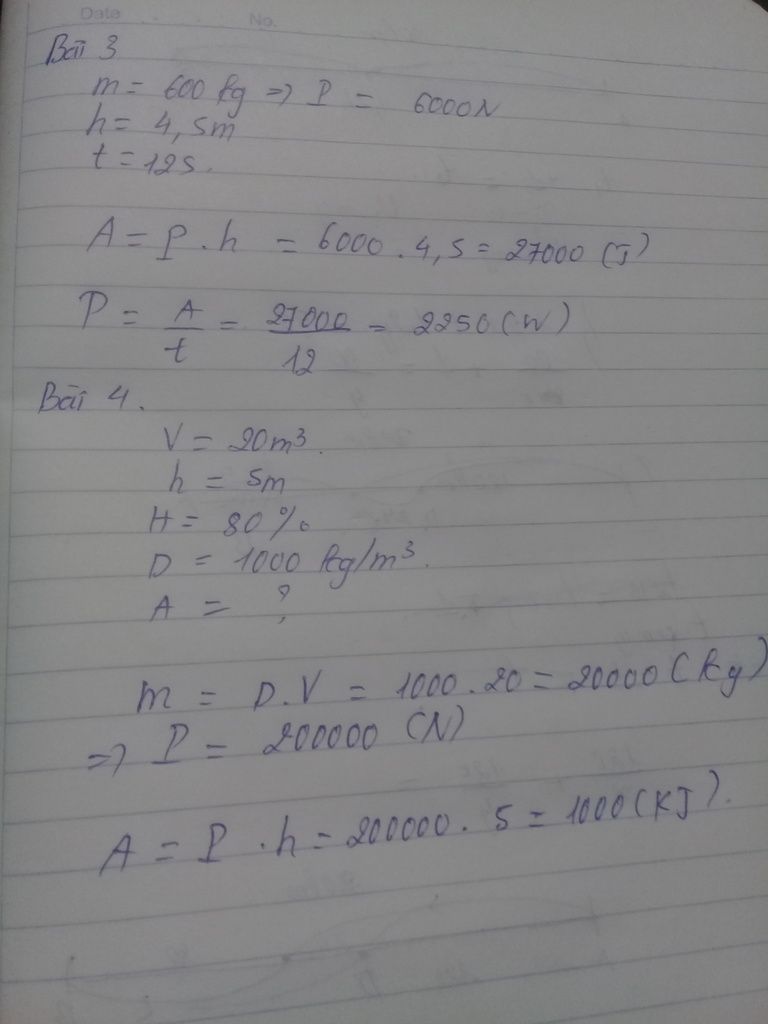 Date No.
Bài 3
m = 600 kg => P = 6000N
h = 4,5m
t = 12s.
A = P . h = 6000 . 4,5 = 27000 (J)
P = A/t = 27000/12 = 2250 (W)
Bài 4.
V = 20m³.
h = 5m
H = 80%
D = 1000 kg/m³.
A = ?
m = D.V = 1000.20 = 20000 (kg)
=> P = 200000 (N)
A = P . h = 200000. 5 = 1000 (KJ).